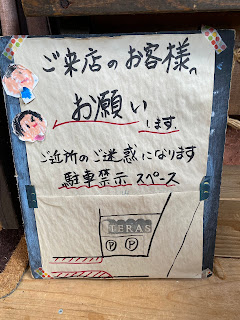 ご来店のお客様へ
お願い
します。
ご近所のご迷惑になります
駐車禁示 スペース
TERAS
P P